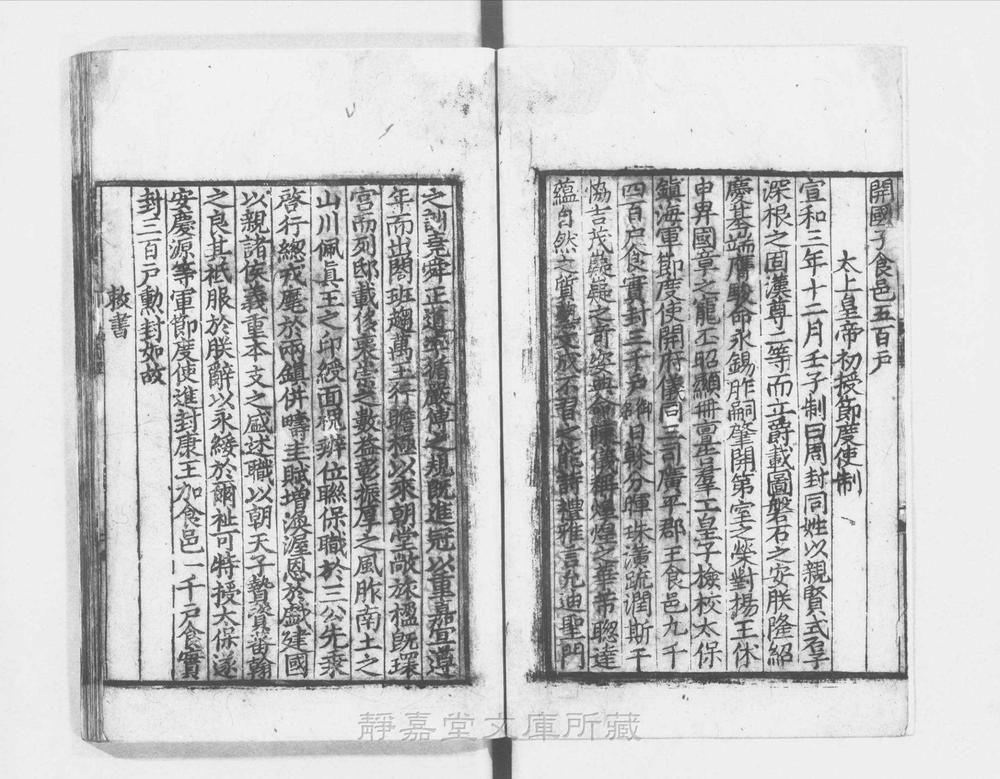 開國子食邑五百戶
太上皇帝初授節度使制
宣和三年十二月壬子制曰周封同姓以親賢式孚
深根之固漢尊二等而立爵載圖磐石之安朕隆紹
慶基端膺駿命永錫胙嗣肇開第室之榮對揚王休
申畀國章之寵丕昭顯冊亶告羣工皇子檢校太保
鎮海軍節度使開府儀同三司廣平郡王食邑九千
四百戶食實封三千戶御名日榦分暉珠潢疏潤斯干
協吉茂嶷嶷之奇姿典命陳儀稱煌煌之華芾聰達
蘊自然之質藝文成不習之能詩禮雅言允迪聖門
之訓堯舜正道率循嚴傅之規旣進冠以重嘉宣遵
年而出閤班趨萬玉行瞻極以來朝堂敞旅楹旣環
宮而列邸載侈褒崇之數益彰振厚之風胙南土之
山川佩眞王之印綬面槐辨位聮保職於三公先乘
啓行總戎麾於兩鎮併疇圭賦增渙渥恩於戲建國
以親諸侯義重本支之盛述職以朝天子贄資蕃翰
之良其祗服於朕辭以永綏於爾祉可特授太保遂
安慶源等軍節度使進封康王加食邑一千戶食實
封三百戶勳封如故
赦書
靜嘉堂文庫所藏